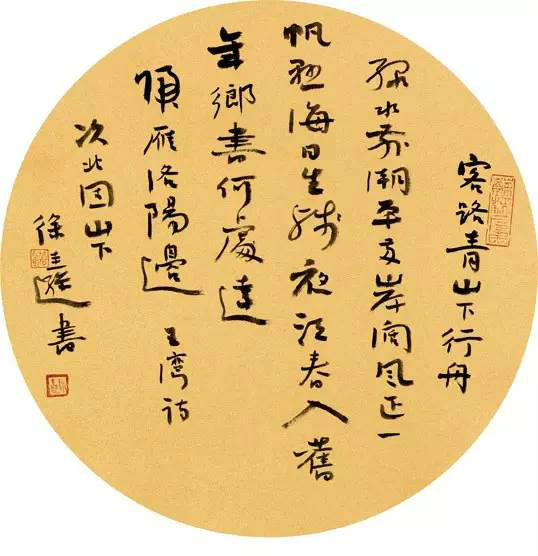 客路青山下行舟
绿水前潮平两岸阔风正一
帆悬海日生残夜江春入舊
年鄉書何處達
歸雁洛陽邊
王湾诗
次北固山下
徐書